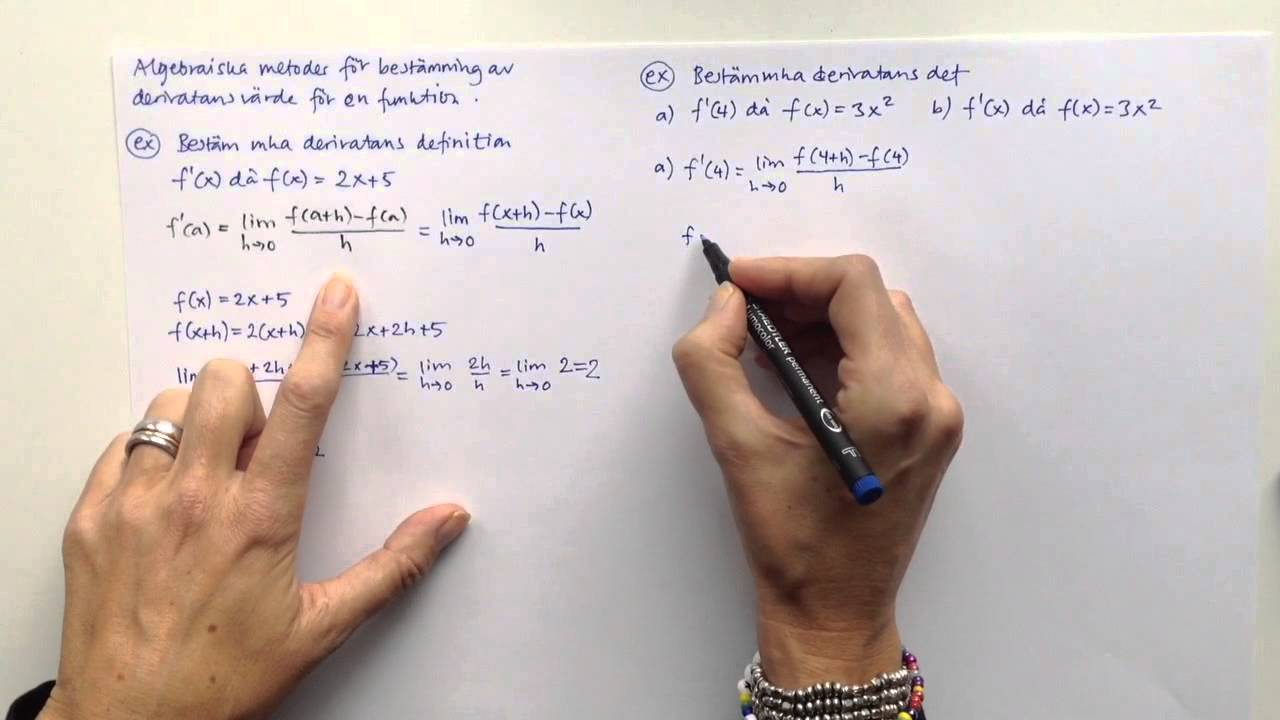 Algebraiska metoder för bestämming av
derivatans värde för en funktion.
ex Bestäm mha derivatans definition
f'(x) då f(x) = 2x+5
f'(a) = lim h→0 f(a+h)-f(a) / h = lim h→0 f(x+h)-f(x) / h
f(x) = 2x+5
f(x+h) = 2(x+h) 2x+2h+5
lim + 2h 2x+5) = lim h→0 2h / h = lim h→0 2=2
2
ex Bestäm mha derivatans def
a) f'(4) då f(x) = 3x² b) f'(x) då f(x) = 3x²
a) f'(4) = lim h→0 f(4+h)-f(4) / h
f
STAEDTLER permanent
Lumocolor
F